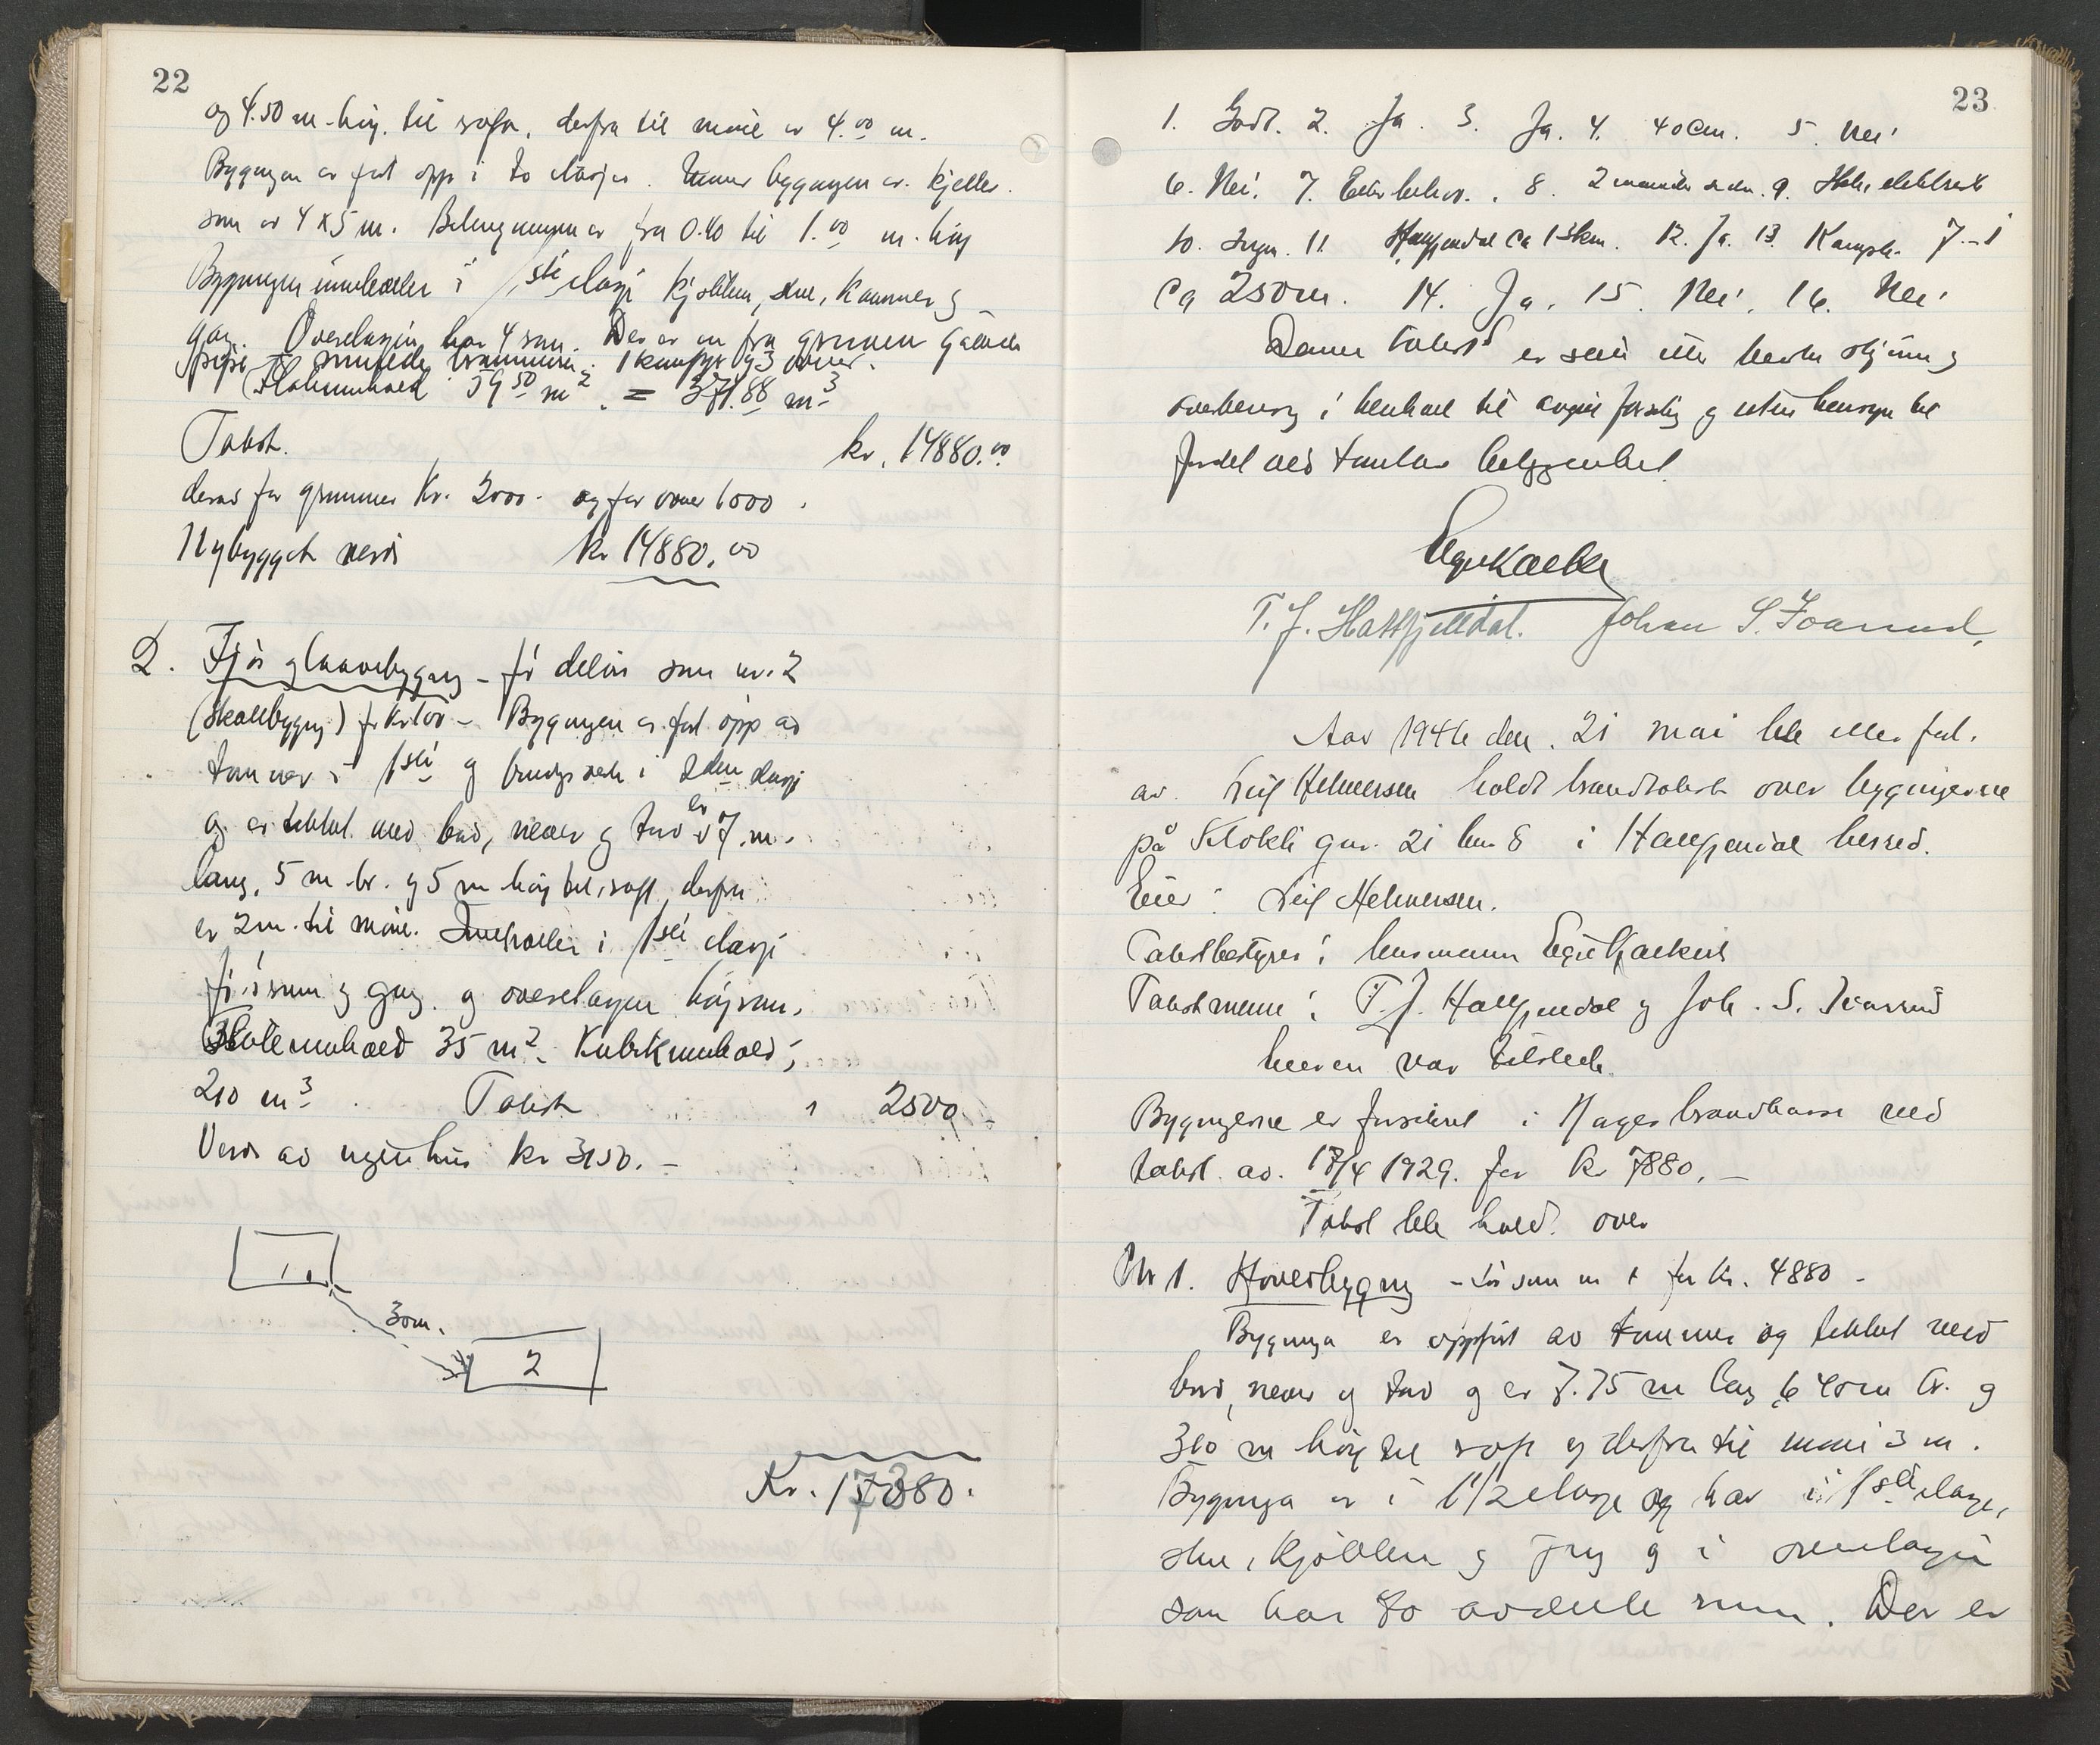 22
og 4.50 m. høy. til rafn, derfra til møne er 4.00 m.
Bygnyen er ført opp i to etasjer. Under bygnyen er kjeller.
som er 4 x 5 m. er fra 0.40 til 1.00 m. høy
Bygnyen inneholder i 1ste etasje kjøkken, stue, kammer og
gang. Overetagen har 4 rum. Der er en fra grunnen gående
pipe 1 komfyr og 3 ovner.
Flateinnhold 59 50 m2. = 371.88 m3
Takst. kr. 14880.00
derav for grunnmur Kr. 2000.- og for ovner 1000.
Nybygget verdi kr 14880.00
2. Fjøs og laavebygning - før som nr. 2
for kr - Bygnyen er ført opp av
tømmer i 1ste og i 2den etasje
og er tekket med bord, never og torv er 7 m.
lang, 5 m br. og 5 m høy til raft, derfra
er 2 m. til møne. Inneholder i 1ste etasje
fjøsrum og gang og overetagen høyrum.
Flateinnhold 35 m2. Kubikkinnhold;
210 m3. Takst 2500
Verdi av nytt hus kr 3150.-
1.
30m.
2
Kr. 17380.
23
1. Godt. 2. Ja. 3. Ja. 4. 40 cm. 5. Nei
6. Nei. 7. Etter behov. 8. 2 9. elektrisk
10. Ingen. 11. Hattfjelldal ca 13 km. 12. Ja. 13.
ca 250 m. 14. Ja. 15. Nei. 16. Nei.
Denne takst er satt etter beste skjønn og
overbevisning i henhold til avgitt forsikring og uten hensyn til
fordel ved tomtens beliggenhet.
T. J. Hattfjelldal. Johan S.
Aar 1946 den. 21 mai ble etter forl.
av Leif Helmersen holdt brandtakst over bygningerne
på gnr. 21 bnr 8 i Hattfjelldal herred.
Eier: Leif Helmersen.
Takstbestyrer: lensmann
Takstmenn: T. J. Hattfjelldal og Joh. S.
Eieren var tilstede.
Bygningerne er forsikret i Norges brandkasse ved
takst av. 18/4 1929. for kr 7880.-
Takst ble holdt over
Nr 1. Hovedbygning - før som nr 1 for kr. 4880 -
Bygninga er oppført av tømmer og tekket med
bord, never og torv og er 7.75 m lang 6 40 m br. og
310 m høy til raft og derfra til møne 3 m.
Bygninga er i 1 1/2 etasje og har i 1ste etasje,
stue, kjøkken og gang og i overetagen
som har to avdelte rum. Der er